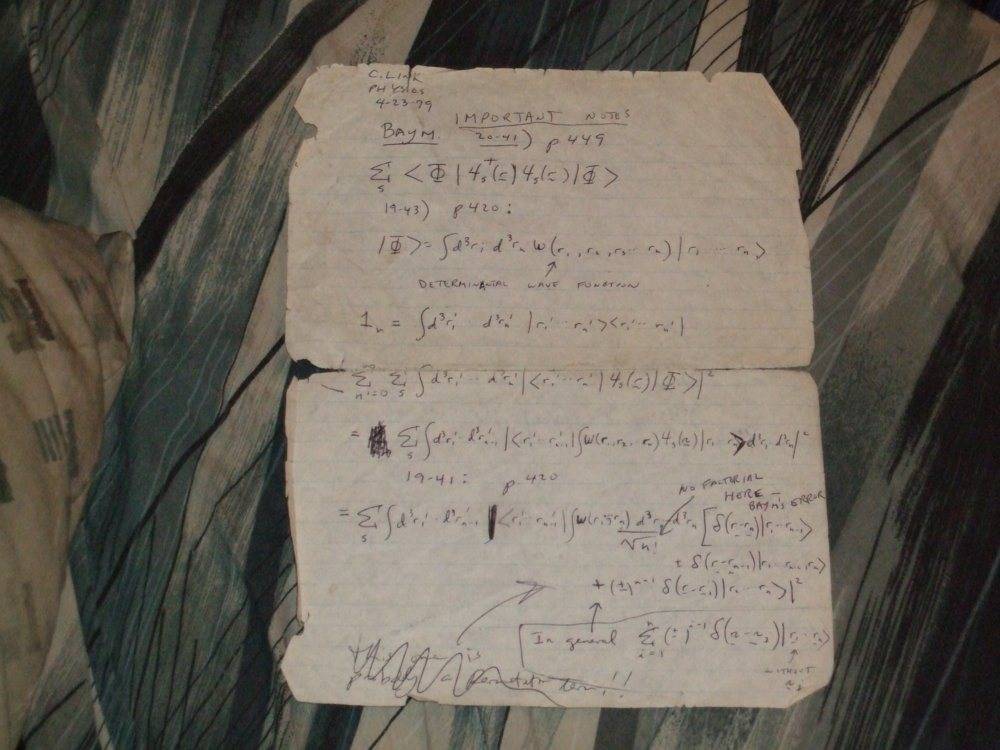 C. LINK
PHYSICS
4-23-79
IMPORTANT NOTES
BAYM 20-41) p 449
∑_s <Φ|ψ_s†(r)ψ_s(r)|Φ>
19-43) p 420:
|Φ> = ∫d³r₁ d³rₙ W(r₁,r₂,r₃... rₙ)|r₁ ... rₙ>
DETERMINANTAL WAVE FUNCTION
1ₙ = ∫d³r₁' d³rₙ' |r₁'...rₙ'><r₁'...rₙ'|
∑_{n'=0}^∞ ∑_s ∫d³r₁'... d³rₙ' |<r₁'...rₙ'|ψ_s(r)|Φ>|²
= ∑_s ∫d³r₁'... d³r'ₙ₋₁ |<r₁'...r'ₙ₋₁|∫W(r₁,r₂,...rₙ)ψ_s(r)|r₁...rₙ> d³r₁ d³rₙ|²
19-41: p 420
NO FACTORIAL
HERE
BAYM'S ERROR
= ∑_s ∫d³r₁'... d³r'ₙ₋₁ |<r₁'...r'ₙ₋₁|∫W(r₁...rₙ) d³r₁...d³rₙ/√n! [δ(r-rₙ)|r₁...rₙ₋₁>
± δ(r-rₙ₋₁)|r₁...rₙ₋₂,rₙ>
+ (±)ⁿ⁻¹ δ(r-r₁)|r₂...rₙ>|²
In general ∑_{i=1}^n (±)ⁿ⁻¹ δ(r-r_j)|r₁...rₙ>
WITHOUT
r_j
this is
probably a permutation term!!